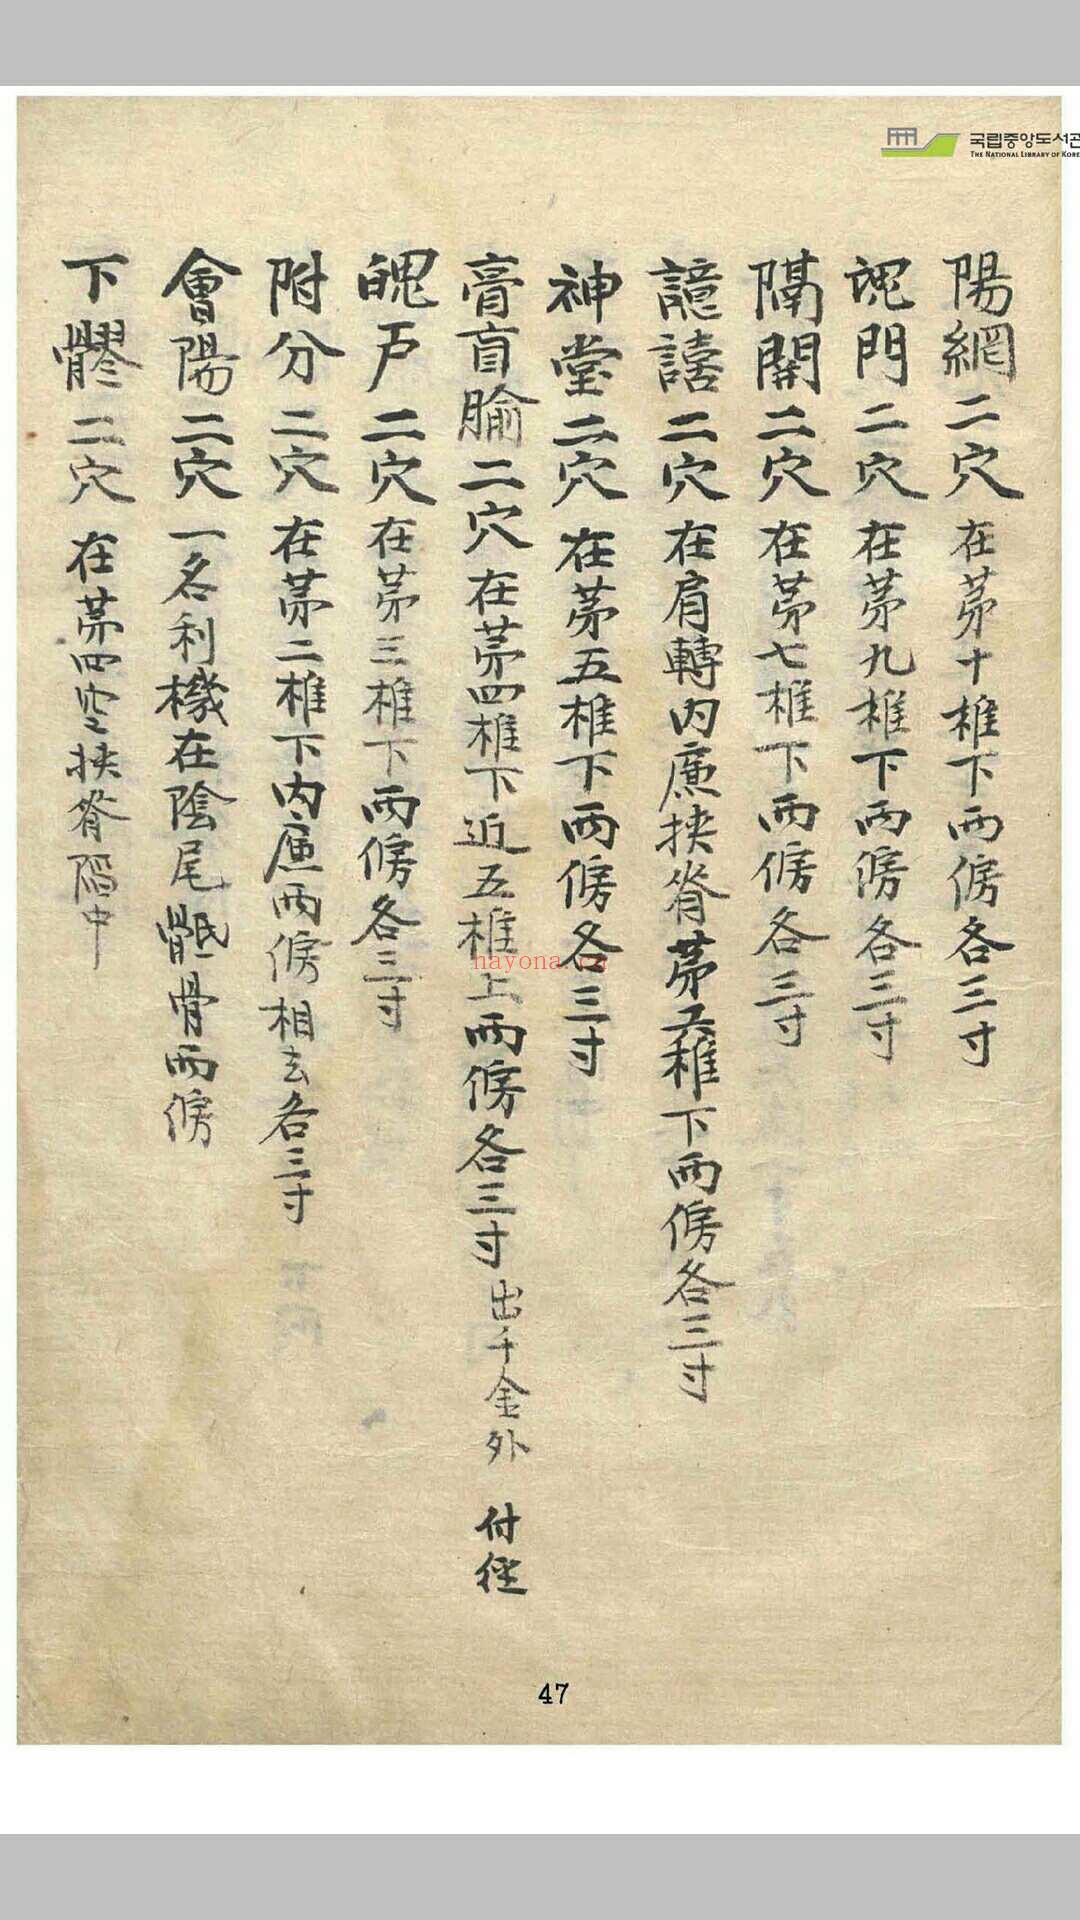 국립중앙도서관
THE NATIONAL LIBRARY OF KORE
陽網二穴在苐十椎下兩傍各三寸
魂門二穴在苐九椎下兩傍各三寸
隔關二穴在苐七椎下兩傍各三寸
譩譆二穴在肩轉內廉挾脊苐六椎下兩傍各三寸
神堂二穴在苐五椎下兩傍各三寸
膏肓腧二穴在苐四椎下近五椎上兩傍各三寸出千金外 付經
魄戶二穴在苐三椎下兩傍各三寸
附分二穴在苐二椎下內廉兩傍相去各三寸
會陽二穴一名利機在陰尾骶骨兩傍
下髎二穴在苐四空挾脊陷中
hayona.cn
47